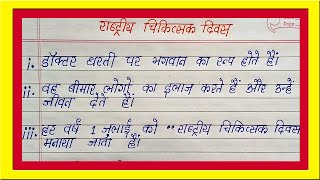 राष्ट्रीय चिकित्सक दिवस
i. डॉक्टर धरती पर भगवान का रूप होते हैं।
ii. वह बीमार लोगो का इलाज करते हैं और उन्हें
जीवन देते हैं।
iii. हर वर्ष 1 जुलाई को "राष्ट्रीय चिकित्सक दिवस
मनाया जाता हैं।